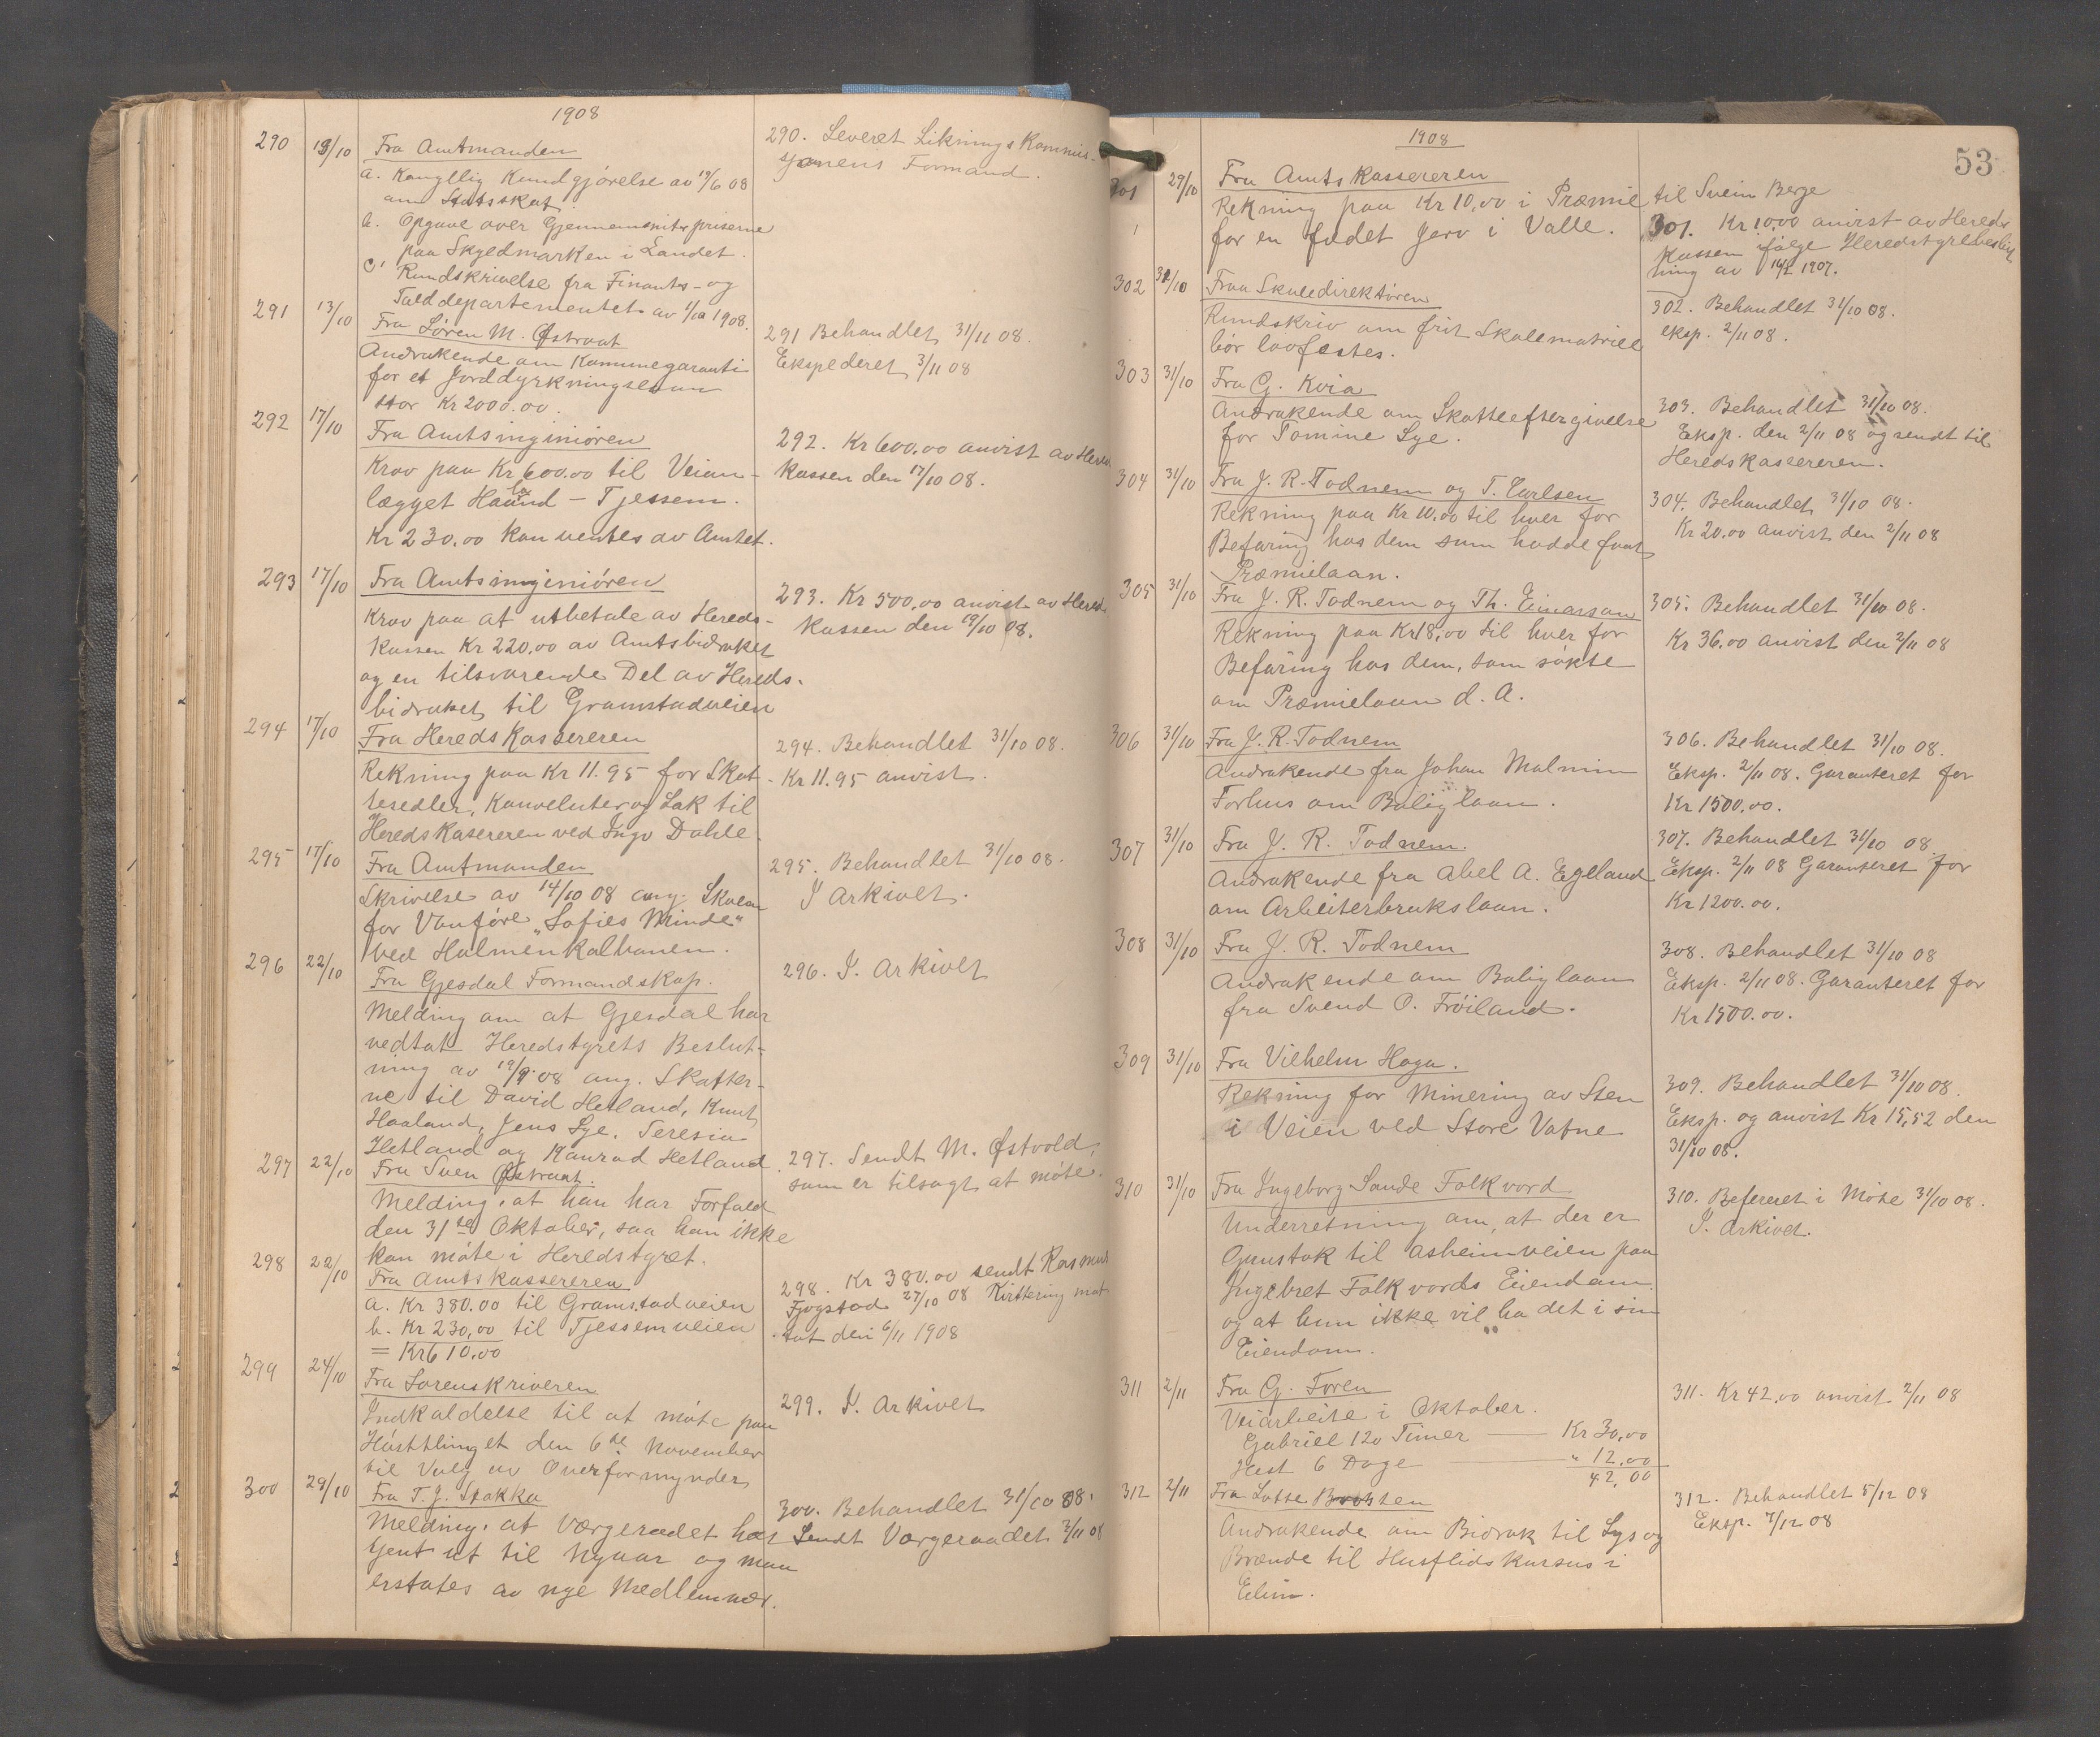 1908
290 13/10 Fra Amtmanden
a. Kongelig Kundgjørelse av 19/6 08
om Statsskat.
b. Opgave over Gjennemsnitspriserne
paa Skydsmarken i Landet.
c. Rundskrivelse fra Finants- og
Tolddepartementet av 1/10 1908.
290. Leveret Liknings Kommis-
sjonens Formand.
291 13/10 Fra Søren M. Østraat
Andrakende om Kommunegaranti
for et Jorddyrkningslaan
stor Kr 2000.00.
291 Behandlet 31/11 08.
Ekspederet 3/11 08
292 17/10 Fra Amtsingeniøren
Krav paa Kr 600.00 til Veian-
lægget Haaland - Tjessem.
Kr 230.00 kan ventes av Amtet.
292. Kr 600.00 anvist av Hereds
kassen den 17/10 08.
293 17/10 Fra Amtsingeniøren
Krav paa at utbetale av Hereds-
kassen Kr 220.00 av Amtsbidraket
og en tilsvarende Del av Hereds-
bidraket til Gramstadveien
293. Kr 500.00 anvist av Hereds
kassen den 19/10 08.
294 17/10 Fra Heredskassereren
Rekning paa Kr 11.95 for Skat-
tesedler, Konvoluter og Lak til
Heredskasereren ved Ingv Dahle.
294. Behandlet 31/10 08.
Kr 11.95 anvist.
295 17/10 Fra Amtmanden
Skrivelse av 14/10 08 ang. Skolen
for Vanføre "Sofies Minde"
ved Holmenkolbanen.
295. Behandlet 31/10 08.
I Arkivet.
296 22/10 Fra Gjesdal Formandskap.
Melding om at Gjesdal har
vedtat Heredstyrets Beslut-
ning av 19/9 08 ang. Skatter-
ne til David Hetland, Knut
Haaland, Jens Lye, Seresia
Hetland og Konrad Hetland
296. I. Arkivet
297 22/10 Fra Sven Østraat.
Melding, at han har Forfald
den 31te Oktober, saa han ikke
kan møte i Heredstyret.
297. Sendt M. Østvold,
som er tilsagt at møte.
298 22/10 Fra Amtskassereren
a. Kr 380.00 til Gramstadveien
b. Kr 230,00 til Tjessemveien
= Kr 610.00
298. Kr 380.00 sendt Rasmus
Fjogstad 27/10 08 Kvittering mot-
tat den 6/11 1908
299 24/10 Fra Sorenskriveren
Indkaldelse til at møte paa
Høsttinget den 6te November
til Valg av Overformynder
299. I. Arkivet
300 29/10 Fra T. J. Stokka
Melding, at Værgeraadet har
tjent ut til Nyaar og maa
erstates av nye Medlemmer.
300. Behandlet 31/10 08.
Sendt Værgeraadet 3/11 08
53
1908
301 29/10 Fra Amtskassereren
Rekning paa Kr 10,00 i Præmie til Svein Berge
for en fældet Jerv i Valle.
301. Kr 10.00 anvist av Hereds
kassen ifølge Heredstyrebeslut
ning av 14/2 1907.
302 31/10 Fraa Skuledirektøren
Rundskriv um frit Skulematriell
bør lovfestes.
302. Behandlet 31/10 08.
eksp. 2/11 08.
303 31/10 Fra G. Kvia
Andrakende om Skatteeftergivelse
for Tomine Lye.
303. Behandlet 31/10 08.
Eksp. den 2/11 08 og sendt til
Heredskassereren.
304 31/10 Fra J. R. Todnem og T. Carlsen
Rekning paa Kr 10.00 til hver for
Befaring hos dem som hadde faat
Præmielaan.
304. Behandlet 31/10 08.
Kr 20.00 anvist den 2/11 08
305 31/10 Fra J. R. Todnem og Th. Einarson
Rekning paa Kr 18,00 til hver for
Befaring hos dem, som søkte
om Præmielaan d. A.
305. Behandlet 31/10 08.
Kr 36.00 anvist den 2/11 08
306 31/10 Fra J. R. Todnem
Andrakende fra Johan Malmin
Forhus om Boliglaan.
306. Behandlet 31/10 08.
Eksp. 2/11 08. Garanteret for
Kr 1500.00.
307 31/10 Fra J. R. Todnem.
Andrakende fra Abel A. Egeland
om Arbeiterbrukslaan.
307. Behandlet 31/10 08.
Eksp. 2/11 08 Garanteret for
Kr 1200.00.
308 31/10 Fra J. R. Todnem
Andrakende om Boliglaan
fra Svend O. Frøiland.
308. Behandlet 31/10 08
Eksp. 2/11 08. Garanteret for
Kr 1500.00.
309 31/10 Fra Vilhelm Haga.
Rekning for Minering av Sten
i Veien ved Store Vatne
309. Behandlet 31/10 08.
Eksp. og anvist Kr 15,52 den
31/10 08.
310 31/10 Fra Ingeborg Sande Folkvord
Underretning om, at der er
Grustak til Asheimveien paa
Ingebret Folkvords Eiendom
og at hun ikke vil ha det i sin
Eiendom.
310. Refereret i Møte 31/10 08.
I. Arkivet.
311 2/11 Fra G. Foren
Veiarbeite i Oktober.
Gabriel 120 Timer — Kr 30,00
Hest 6 Dage — " 12,00
42,00
311. Kr 42,00 anvist 2/11 08
312 2/11 Fra Lotte
Andrakende om Bidrak til Lys og
Brænde til Husflidskursus i
Elim.
312. Behandlet 5/12 08
Eksp. 7/12 08